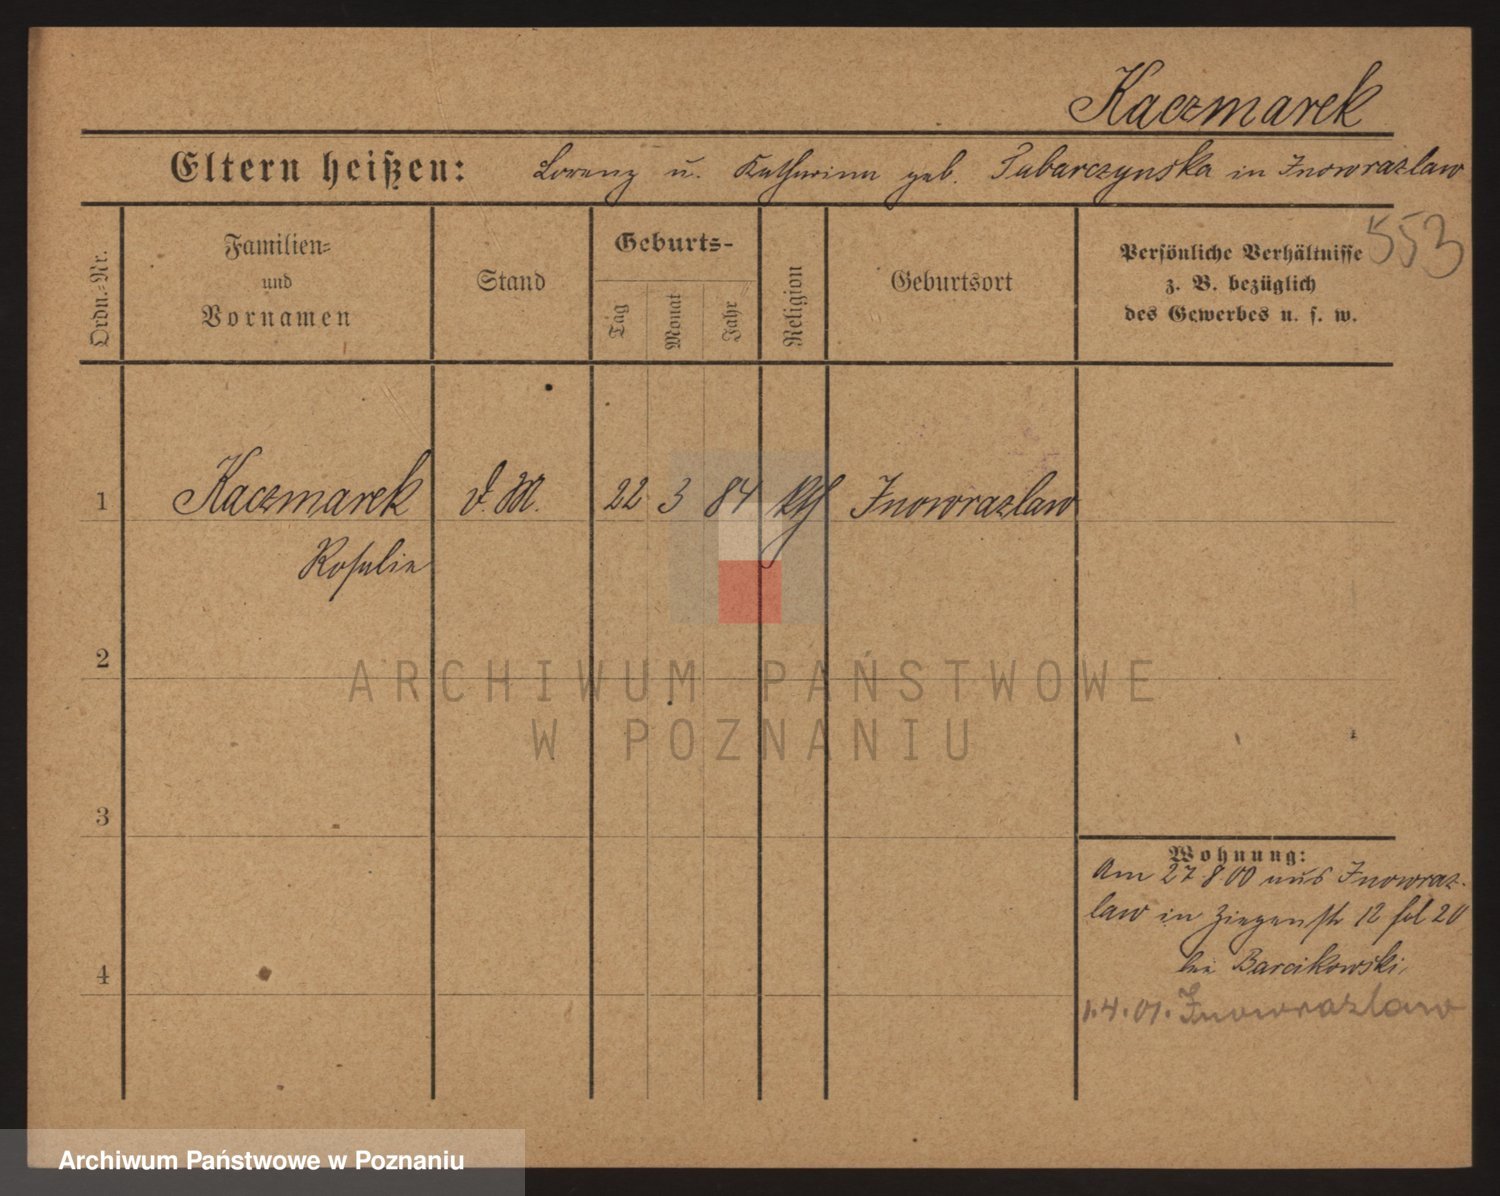 Kaczmarek
Eltern heißen: Lorenz u. Katharina geb. Tubarczynska in Inowrazlaw
553
Ordn.-Nr.
Familien- und Vornamen
Stand
Geburts-
Tag
Monat
Jahr
Religion
Geburtsort
Persönliche Verhältnisse
z. B. bezüglich
des Gewerbes u. s. w.
1 Kaczmarek d. M. 22 3 84 kth Inowrazlaw
Rosalie
2
3
4
Wohnung:
Am 27 8 00 aus Inowraz-
law in Ziegenstr 12 20
bei Barcikowski
1.4.01. Inowrazlaw
ARCHIWUM PAŃSTWOWE
W POZNANIU
Archiwum Państwowe w Poznaniu